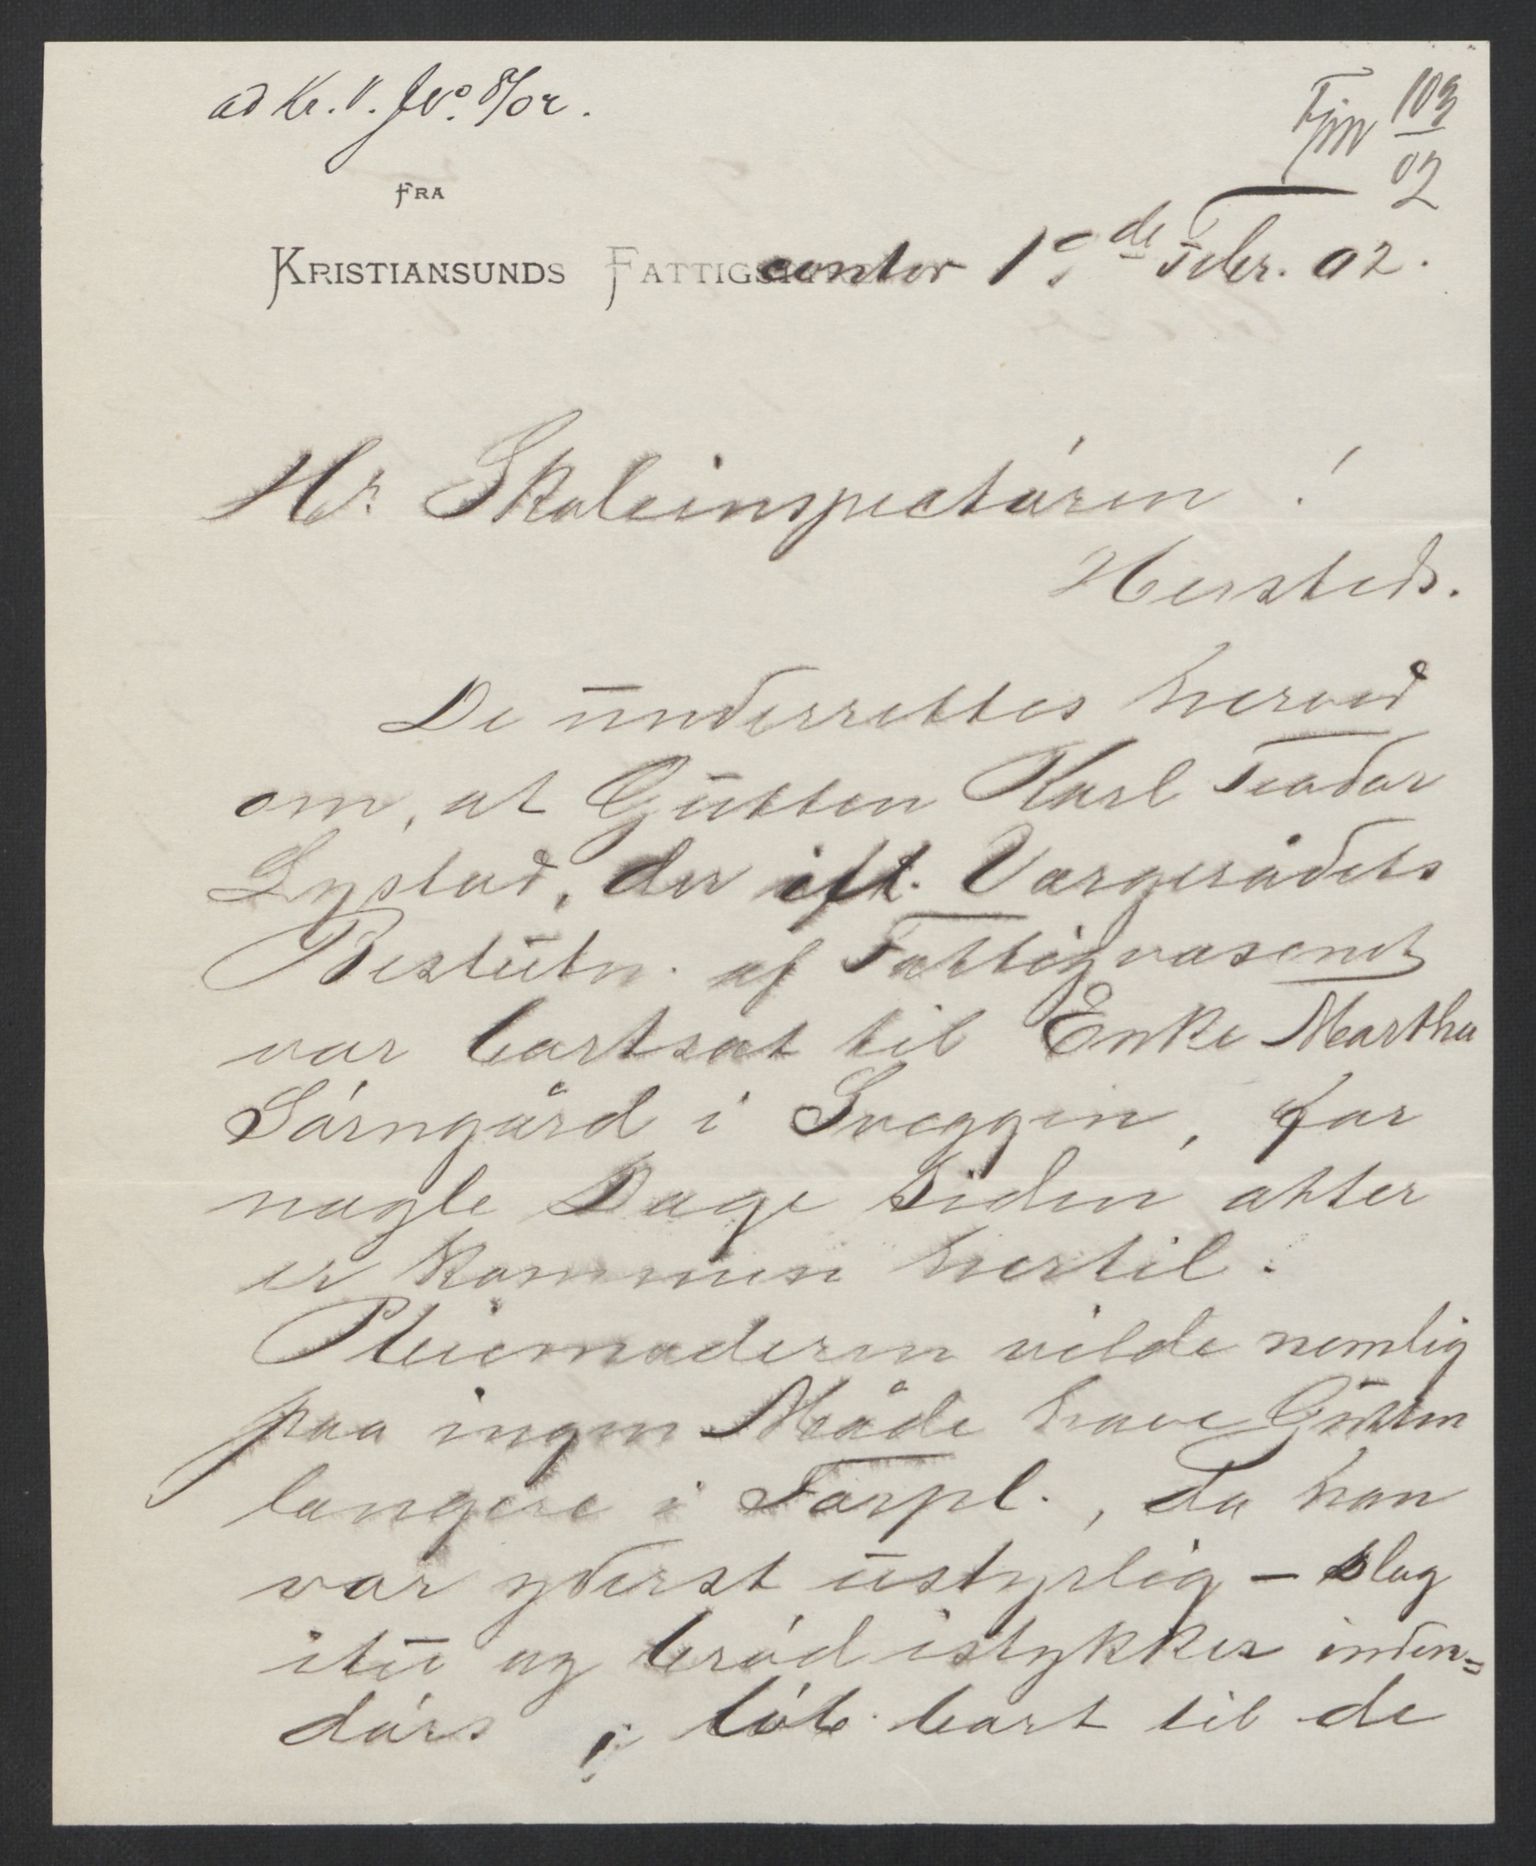 ad Kr. V. Jno. 8/02.
Fjm 103/02
FRA
KRISTIANSUNDS FATTIGScontor 19de Febr. 02.
Hr. Skoleinspectóren!
Hersteds.
De ūnderrettes herved
om, at Gūtten Karl Teodor
Lystad, der ift. Vergerådets
Beslūtn. af Fattigvæsenet
var bortsat til Enke Martha
Sórngård i Sveggen, for
nogle Dage siden atter
er kommen hertil.
Pleiemoderen vilde nemlig
paa ingen Måde have Gūtten
længere i Forpl., da han
var yderst ūstyrlig – slog
itū og bród istykker inden=
dórs, lób bort til de